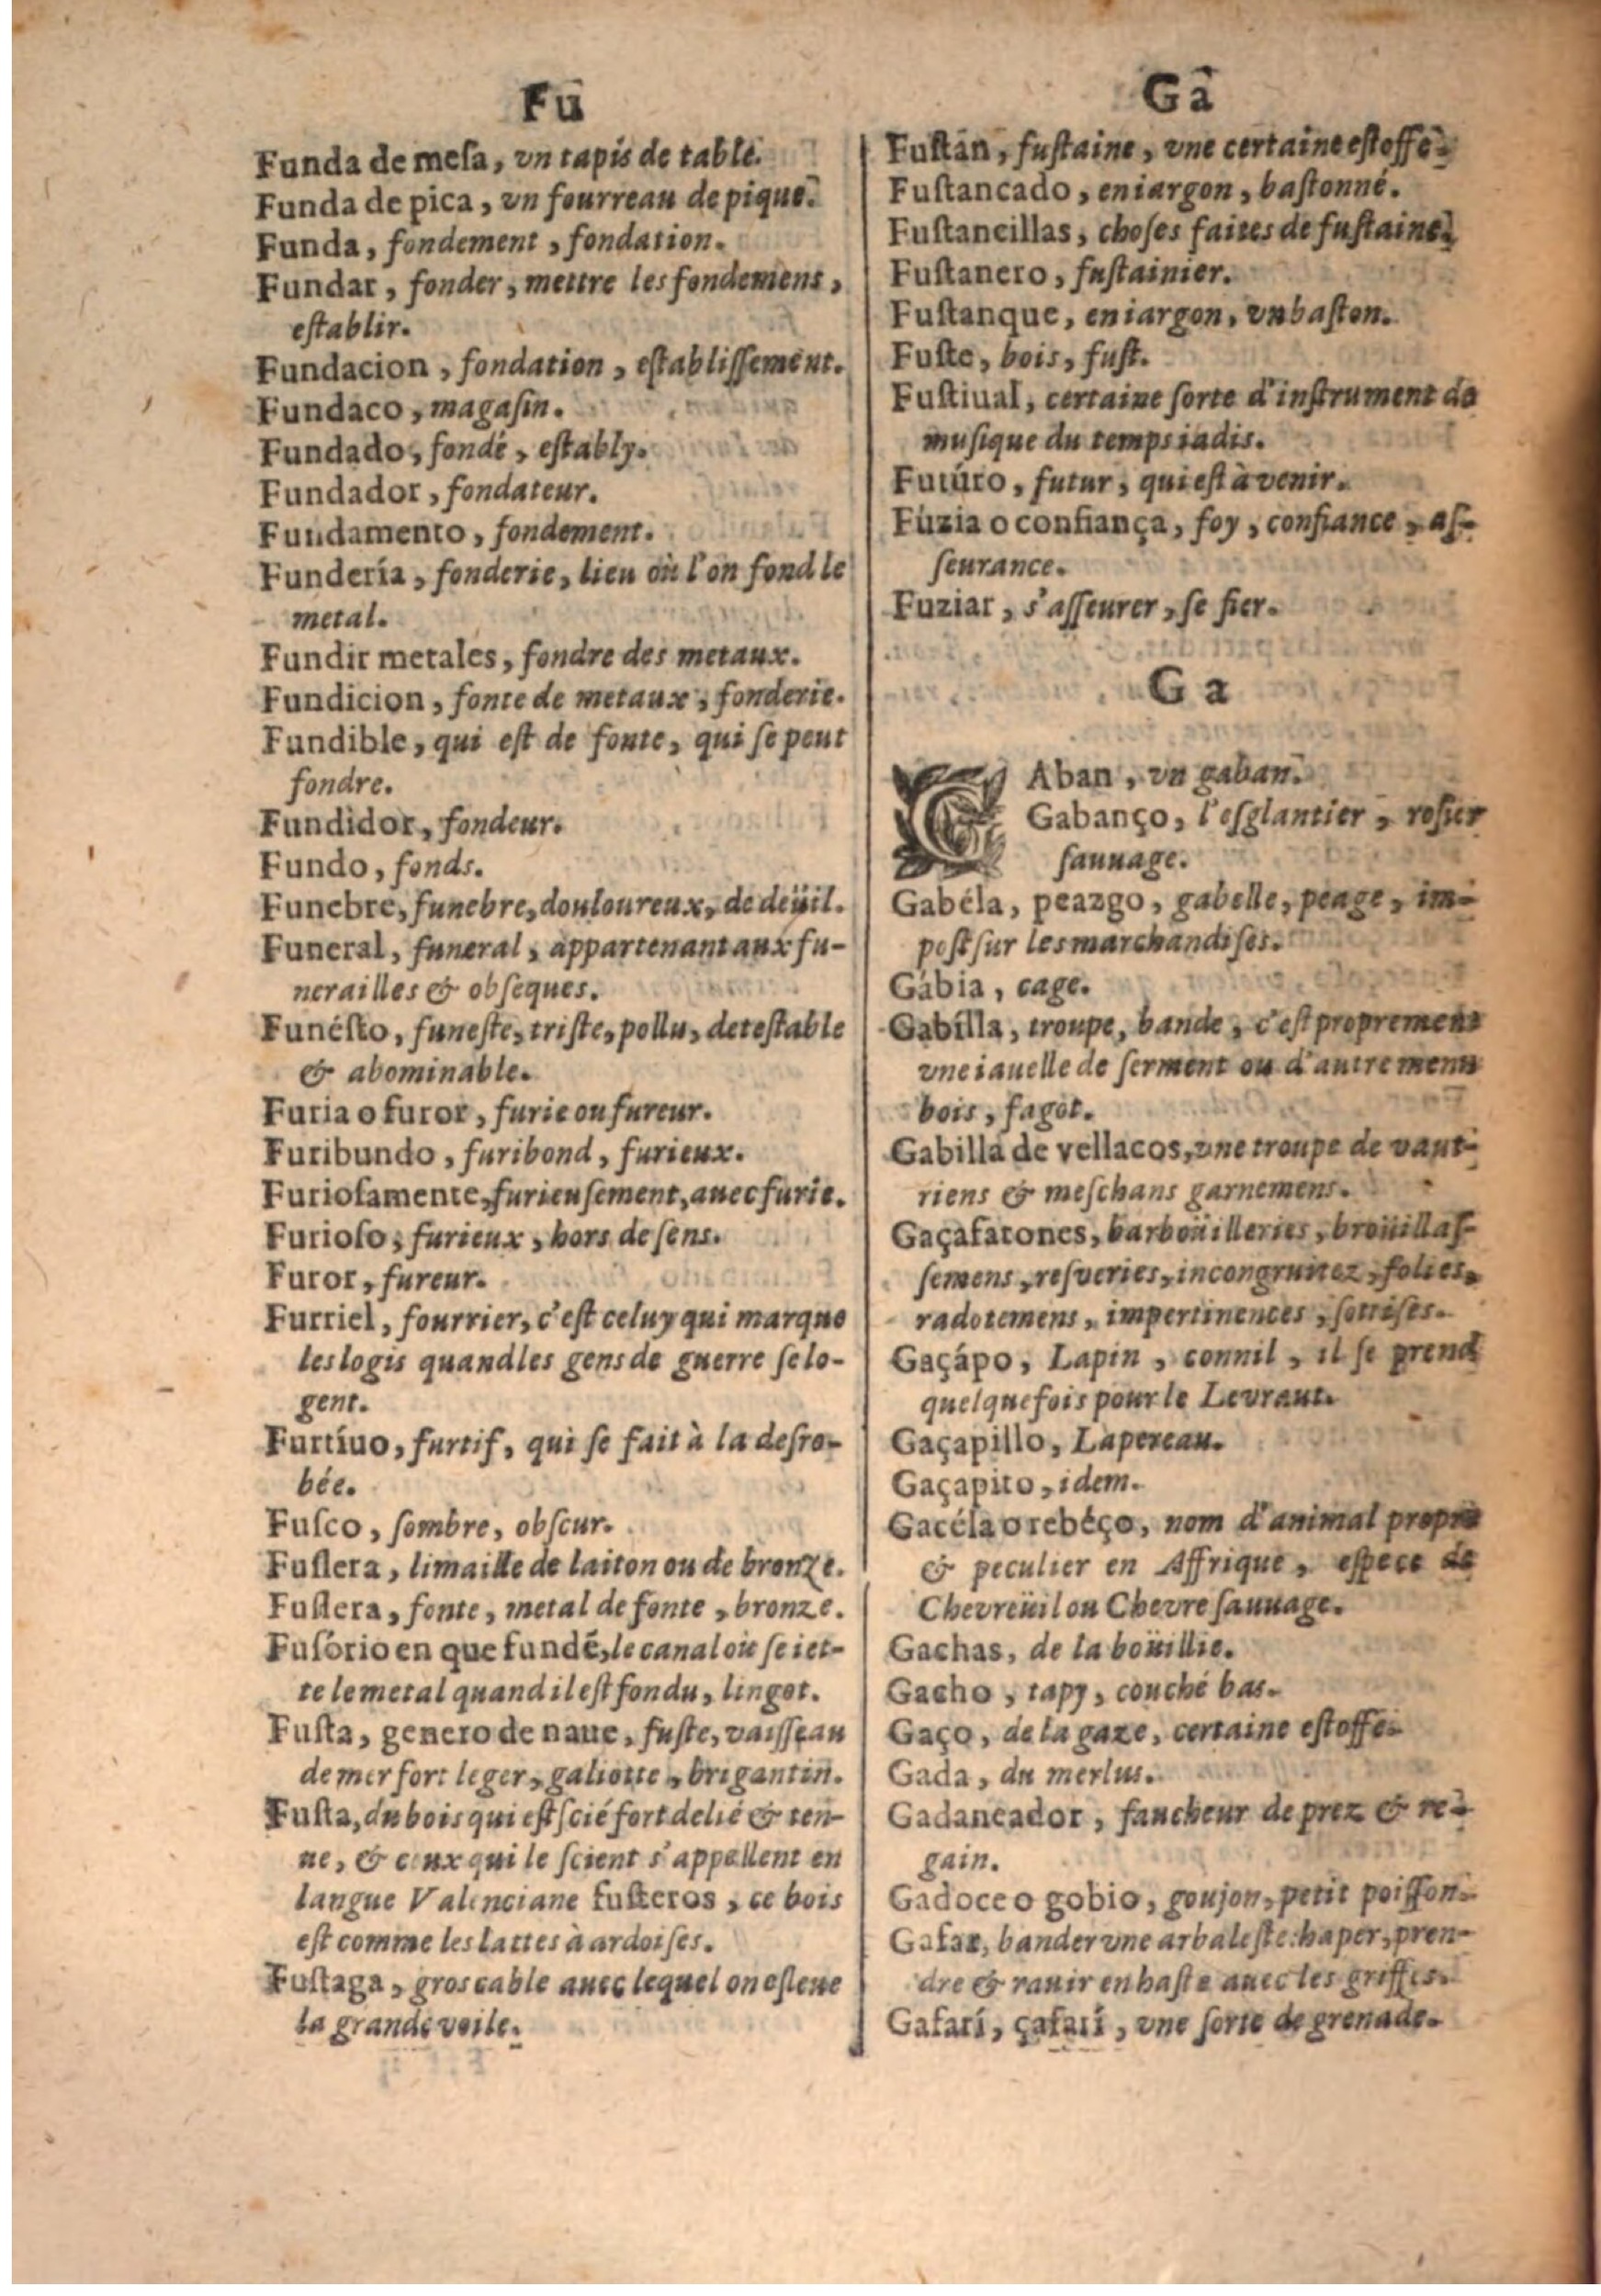 Fu
Funda de meſa, vn tapis de table.
Funda de pica, vn fourreau de pique.
Funda, fondement, fondation.
Fundar, fonder, mettre les fondemens,
eſtablir.
Fundacion, fondation, eſtabliſſement.
Fundaco, magaſin.
Fundado, fondé, eſtably.
Fundador, fondateur.
Fundamento, fondement.
Fundería, fonderie, lieu où l'on fond le
metal.
Fundir metales, fondre des metaux.
Fundicion, fonte de metaux, fonderie.
Fundible, qui eſt de fonte, qui ſe peut
fondre.
Fundidor, fondeur.
Fundo, fonds.
Funebre, funebre, douloureux, de deüil.
Funeral, funeral, appartenant aux fu-
nerailles & obſeques.
Funéſto, funeſte, triſte, pollu, deteſtable
& abominable.
Furia o furor, furie ou fureur.
Furibundo, furibond, furieux.
Furioſamente, furieuſement, auec furie.
Furioſo, furieux, hors de ſens.
Furor, fureur.
Furriel, fourrier, c'eſt celuy qui marque
les logis quand les gens de guerre ſe lo-
gent.
Furtíuo, furtif, qui ſe fait à la deſro-
bée.
Fuſco, ſombre, obſcur.
Fuſlera, limaille de laiton ou de bronze.
Fuſlera, fonte, metal de fonte, bronze.
Fuſório en que fundé, le canal où ſe iet-
te le metal quand il eſt fondu, lingot.
Fuſta, genero de naue, fuſte, vaiſſeau
de mer fort leger, galiotte, brigantin.
Fuſta, du bois qui eſt ſcié fort delié & ten-
ne, & ceux qui le ſcient s'appellent en
langue Valenciane fuſteros, ce bois
eſt comme les lattes à ardoiſes.
Fuſtaga, gros cable auec lequel on eſleue
la grande voile.
Ga
Fuſtan, fuſtaine, vne certaine eſtoffe.
Fuſtancado, en iargon, baſtonné.
Fuſtancillas, choſes faites de fuſtaine.
Fuſtanero, fuſtainier.
Fuſtanque, en iargon, vn baſton.
Fuſte, bois, fuſt.
Fuſtiual, certaine ſorte d'inſtrument de
muſique du temps iadis.
Futúro, futur, qui eſt à venir.
Fúzia o confiança, foy, confiance, aſ-
ſeurance.
Fuziar, s'aſſeurer, ſe fier.
Ga
GAban, vn gaban.
Gabanço, l'eſglantier, roſier
ſauuage.
Gabéla, peazgo, gabelle, peage, im-
poſt ſur les marchandiſes.
Gábia, cage.
Gabílla, troupe, bande, c'eſt proprement
vne iauelle de ſerment ou d'autre menu
bois, fagot.
Gabilla de vellacos, vne troupe de vaut-
riens & meſchans garnemens.
Gaçafatones, barboüilleries, broüillaſ-
ſemens, reſveries, incongruitez, folies,
radotemens, impertinences, ſottiſes.
Gaçápo, Lapin, connil, il ſe prend
quelquefois pour le Levraut.
Gaçapillo, Lapereau.
Gaçapito, idem.
Gacéla o rebéço, nom d'animal propre
& peculier en Affrique, eſpece de
Chevreüil ou Chevre ſauuage.
Gachas, de la boüillie.
Gacho, tapy, couché bas.
Gaço, de la gaze, certaine eſtoffe.
Gada, du merlus.
Gadaneador, faucheur de prez & re-
gain.
Gadoce o gobio, goujon, petit poiſſon.
Gafar, bander vne arbaleſte: haper, pren-
dre & rauir en haſte auec les griffes.
Gafarí, çafarí, vne ſorte de grenade.